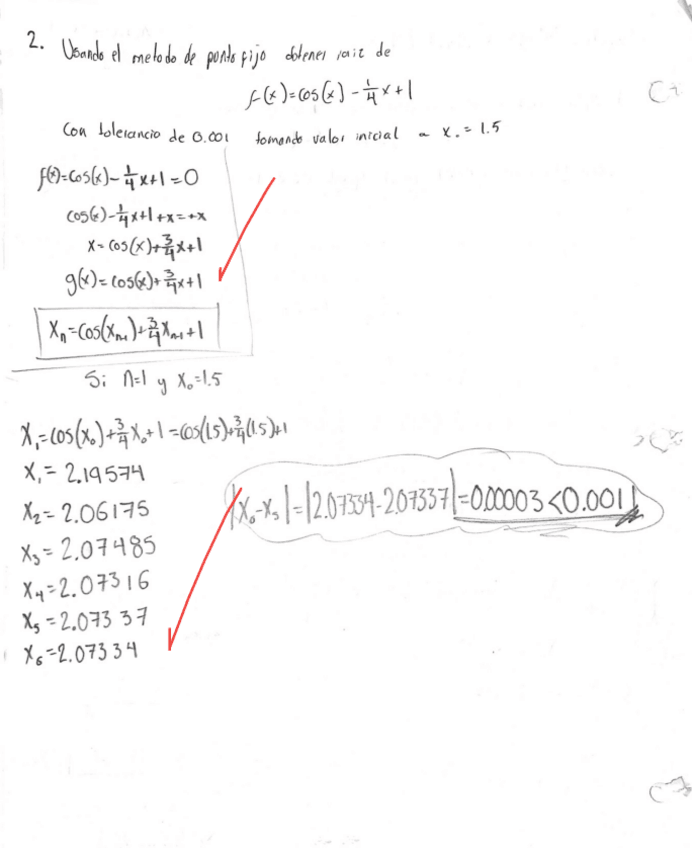 2. Usando el metodo de punto fijo obtener raiz de
f(x)=cos(x)-1/4x+1
Con tolerancia de 0.001 tomando valor inicial a x₀=1.5
f(x)=cos(x)-1/4x+1=0
cos(x)-1/4x+1+x=+x
x=cos(x)+3/4x+1
g(x)=cos(x)+3/4x+1
Xₙ=cos(Xₙ₋₁)+3/4Xₙ₋₁+1
Si n=1 y X₀=1.5
X₁=cos(X₀)+3/4X₀+1=cos(1.5)+3/4(1.5)+1
X₁=2.19574
X₂=2.06175
X₃=2.07485
X₄=2.07316
X₅=2.07337
X₆=2.07334
|X₆-X₅|=|2.07334-2.07337|=0.00003<0.001